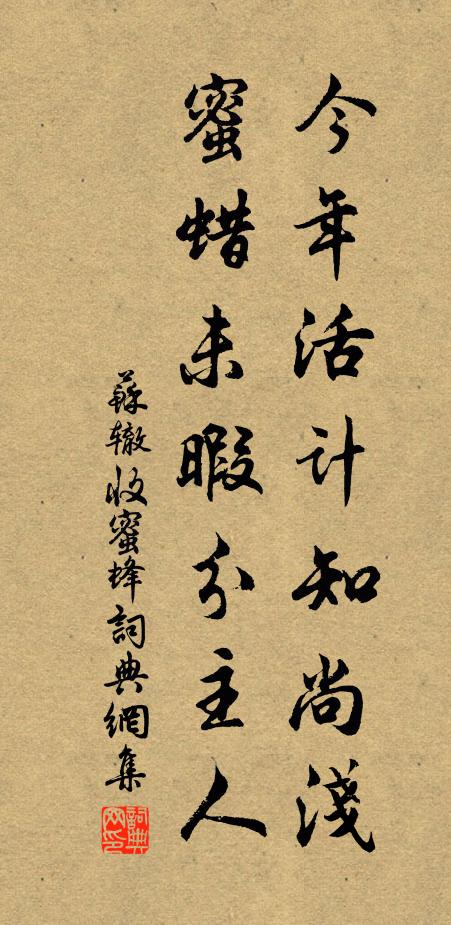 今年活計知尚淺
蜜蜡未暇分主人
蘇辙收蜜蜂詞典網集
詞典网印